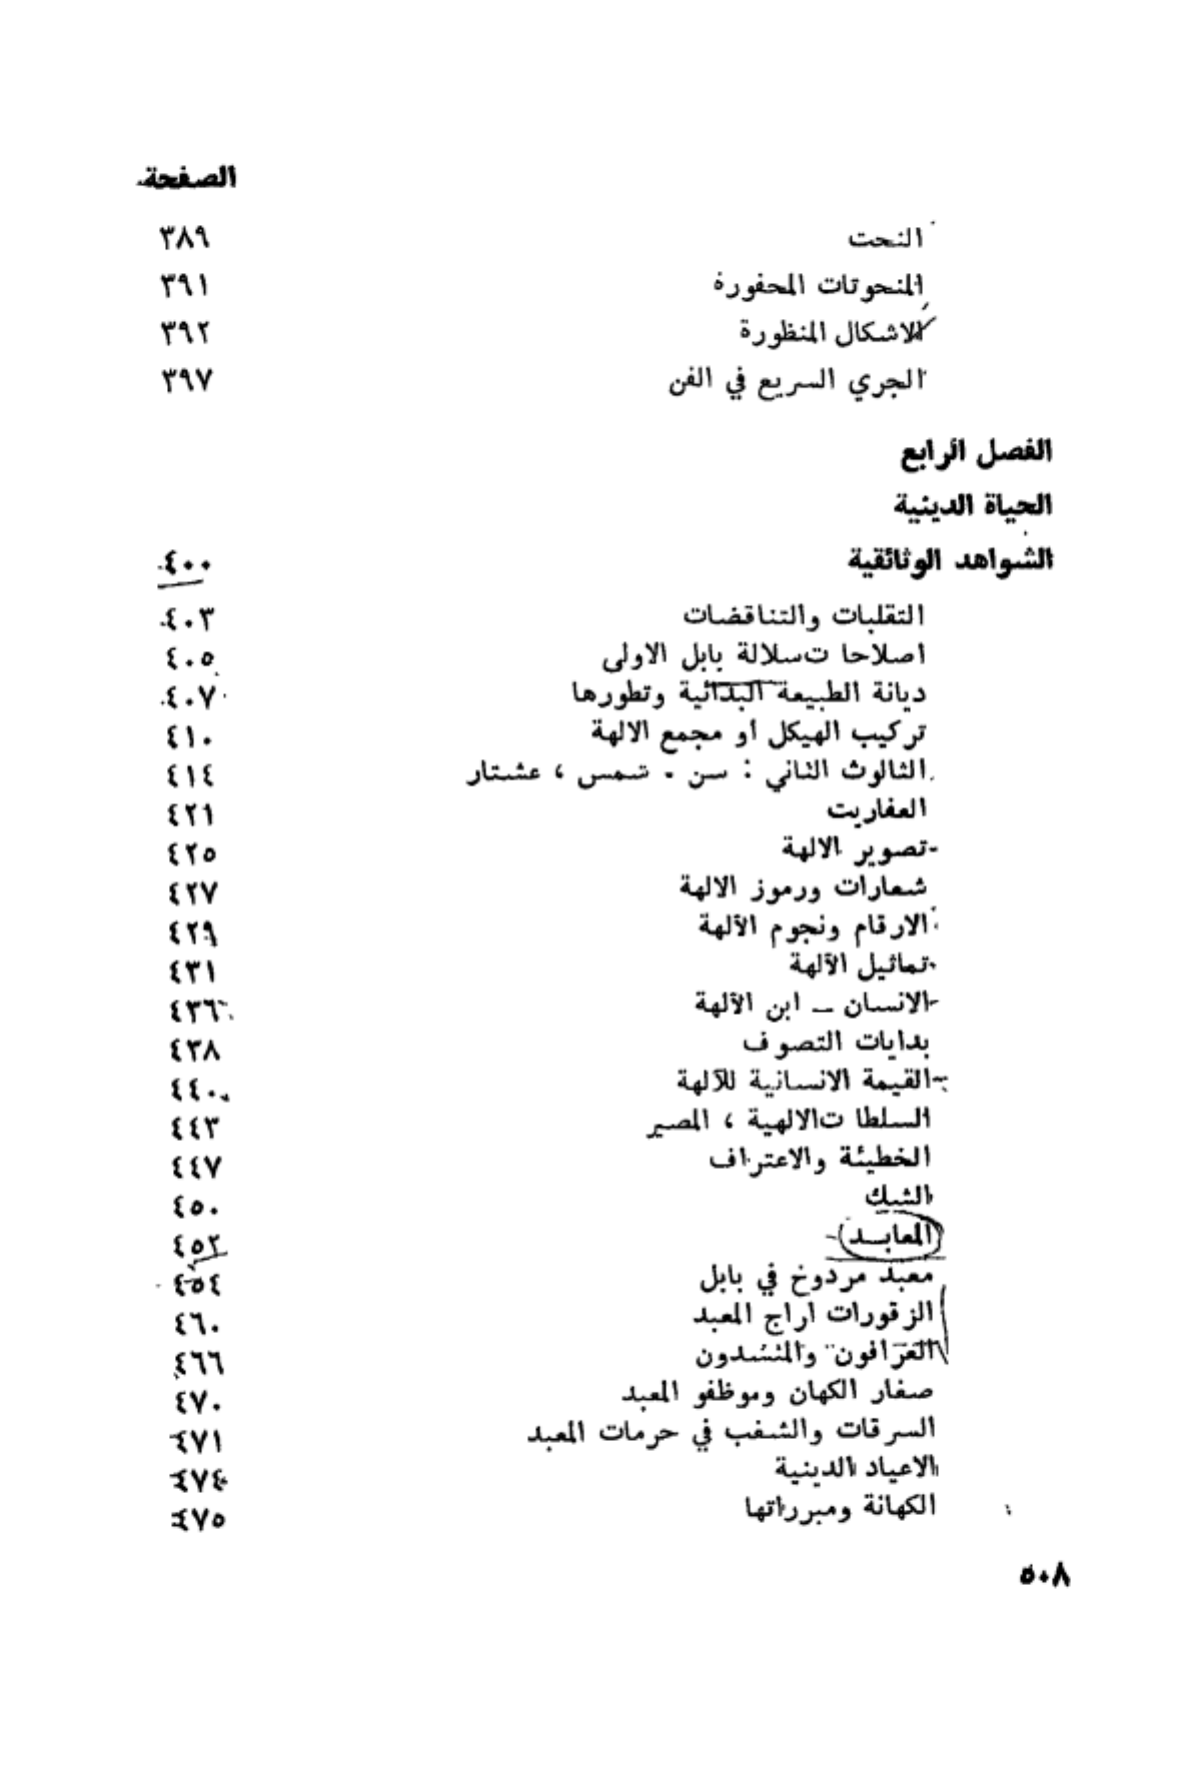 الصفحة
النحت ٣٨٩
المنحوتات المحفورة ٣٩١
الاشكال المنظورة ٣٩٢
الجري السريع في الفن ٣٩٧
الفصل الرابع
الحياة الدينية
الشواهد الوثائقية ٤٠٠
التقلبات والتناقضات ٤٠٣
اصلاحا تسلالة بابل الاولى ٤٠٥
ديانة الطبيعة البدائية وتطورها ٤٠٧
تركيب الهيكل أو مجمع الالهة ٤١٠
الثالوث الثاني : سن . شمس ، عشتار ٤١٤
العفاريت ٤٢١
تصوير الالهة ٤٢٥
شعارات ورموز الالهة ٤٢٧
الارقام ونجوم الآلهة ٤٢٩
تماثيل الآلهة ٤٣١
الانسان — ابن الآلهة ٤٣٦
بدايات التصوف ٤٣٨
القيمة الانسانية للآلهة ٤٤٠
السلطا تالالهية ، المصير ٤٤٣
الخطيئة والاعتراف ٤٤٧
الشك ٤٥٠
المعابد ٤٥٢
معبد مردوخ في بابل ٤٥٤
الزقورات اراج المعبد ٤٦٠
العرافون والمنشدون ٤٦٦
صغار الكهان وموظفو المعبد ٤٧٠
السرقات والشغب في حرمات المعبد ٤٧١
الاعياد الدينية ٤٧٤
الكهانة ومبرراتها ٤٧٥
٥٠٨